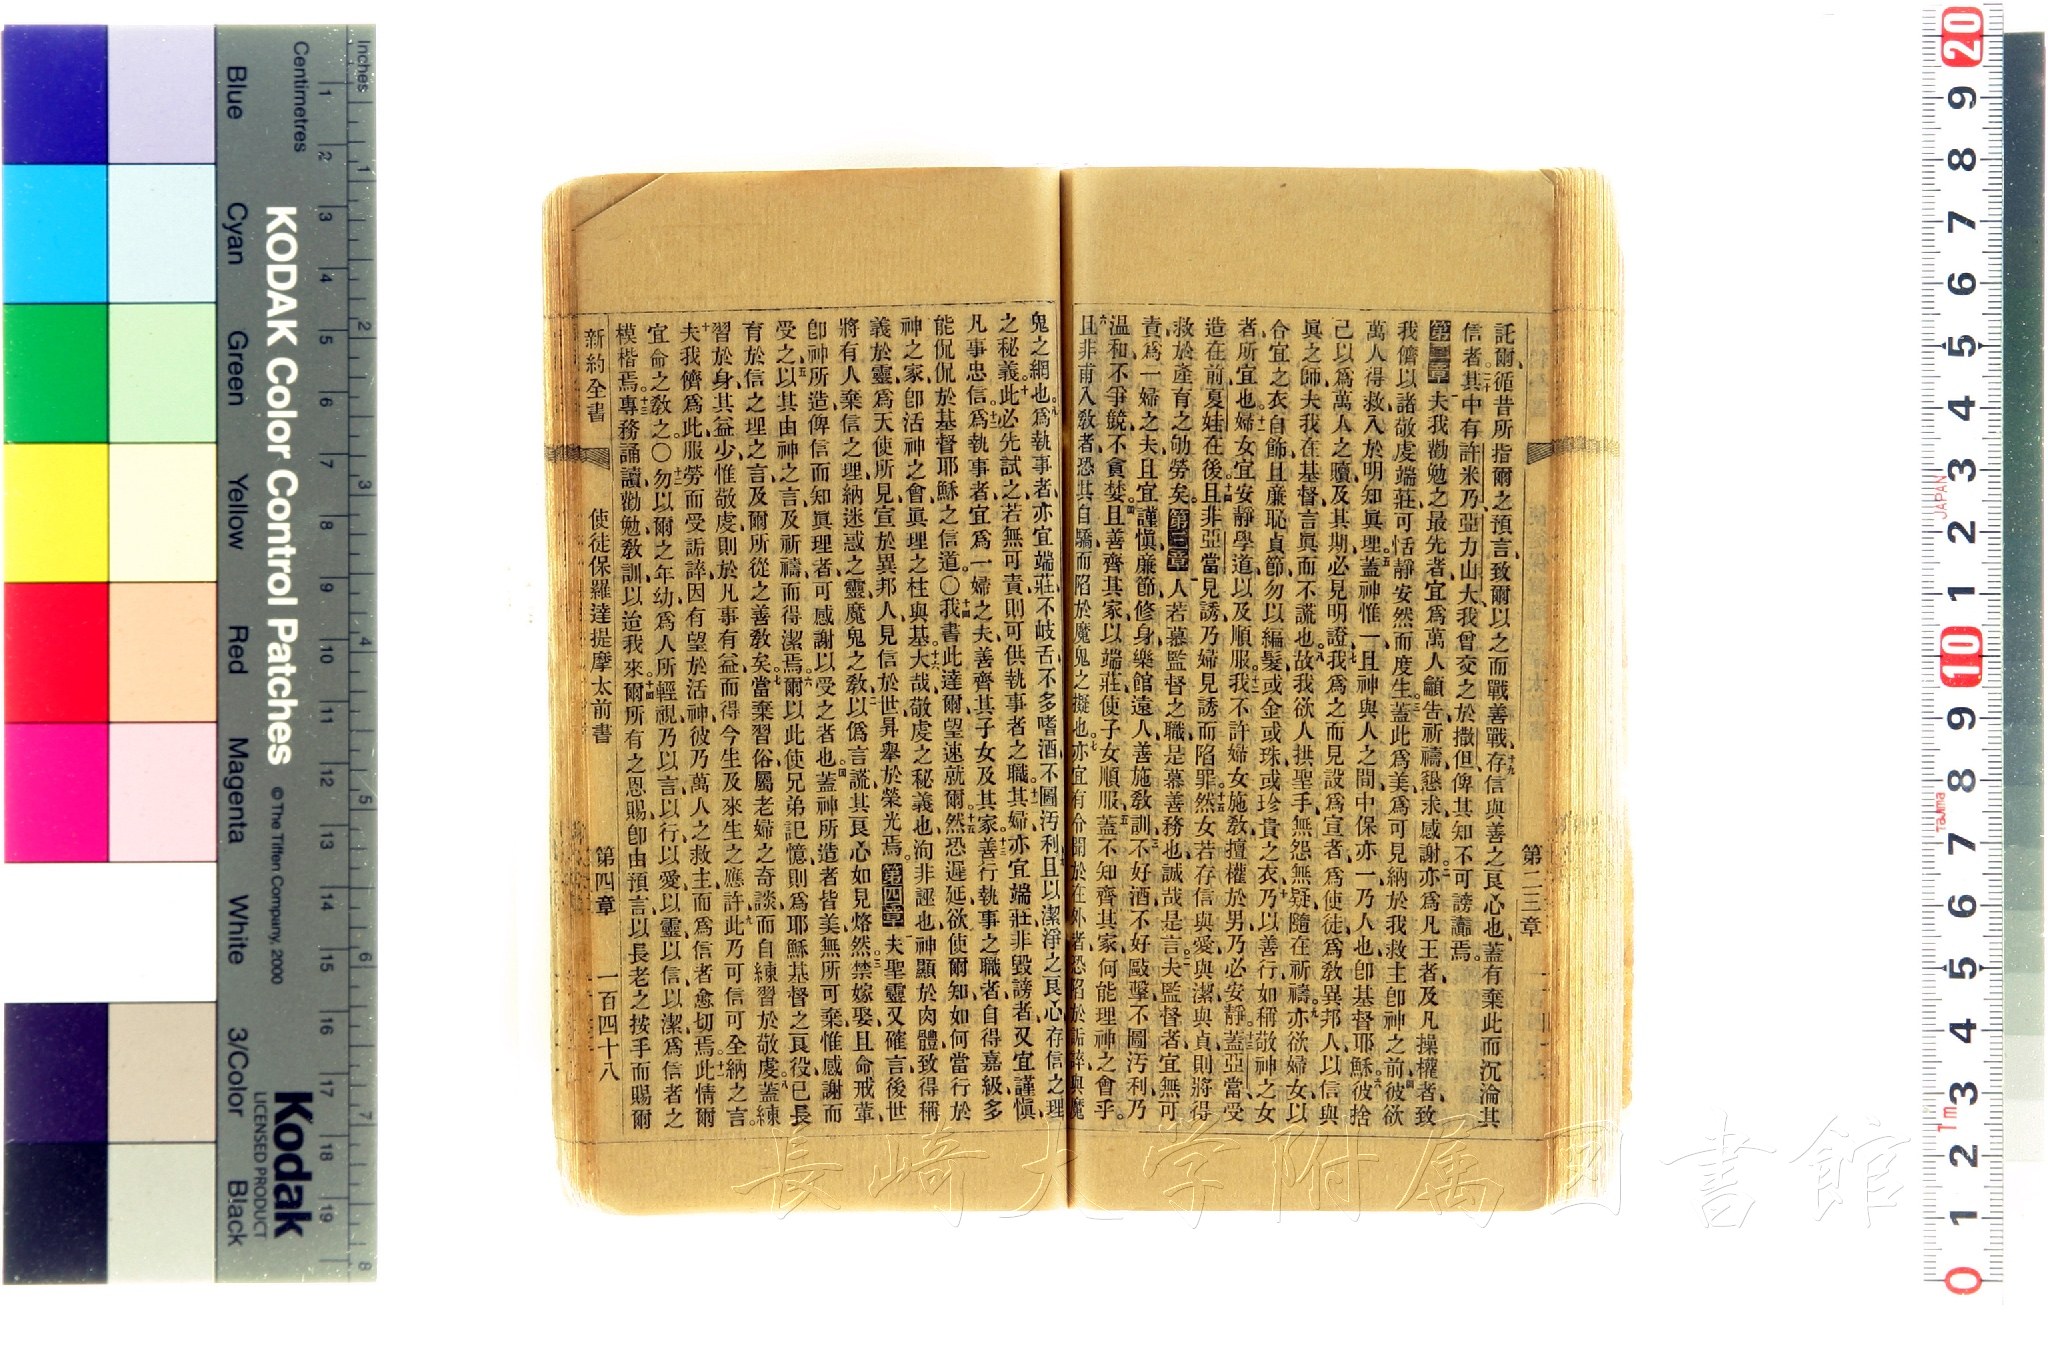 託爾、循昔所指爾之預言、致爾以之而戰善戰、十九存信與善之良心也、蓋有棄此而沉淪其
信者、二十其中有許米乃、亞力山大、我曾交之於撒但、俾其知不可謗讟焉。
第二章 一夫我勸勉之最先者、宜爲萬人籲告祈禱懇求感謝、二亦爲凡王者、及凡操權者、致
我儕以諸敬虔端莊、可恬靜安然而度生、三蓋此爲美、爲可見納於我救主卽神之前、四彼欲
萬人得救、入於明知眞理、五蓋神惟一、且神與人之間中保亦一、乃人也、卽基督耶穌、六彼捨
己以爲萬人之贖、及其期必見明證、七我爲之而見設爲宣者、爲使徒、爲教異邦人以信與
眞之師、夫我在基督言眞而不謊也。八故我欲人拱聖手、無怨無疑、隨在祈禱、九亦欲婦女以
合宜之衣自飾、且廉恥貞節、勿以編髮、或金、或珠、或珍貴之衣、十乃以善行、如稱敬神之女
者所宜也。十一婦女宜安靜學道、以及順服、十二我不許婦女施教、擅權於男、乃必安靜、十三蓋亞當受
造在前、夏娃在後、十四且非亞當見誘、乃婦見誘而陷罪、十五然女若存信與愛、與潔與貞、則將得
救於產育之劬勞矣。第三章 一人若慕監督之職、是慕善務也、誠哉是言、二夫監督者、宜無可
責、爲一婦之夫、且宜謹愼、廉節、修身、樂館遠人、善施教訓、三不好酒、不好毆擊、不圖汚利、乃
温和、不爭競、不貪婪、四且善齊其家、以端莊使子女順服、五蓋不知齊其家、何能理神之會乎。
六且非甫入教者、恐其自驕而陷於魔鬼之擬也、七亦宜有令聞於在外者、恐陷於詬誶與魔
鬼之網也。八爲執事者、亦宜端莊、不岐舌、不多嗜酒、不圖汚利、九且以潔淨之良心、存信之理
之秘義、十此必先試之、若無可責、則可供執事者之職。十一其婦亦宜端莊、非毀謗者、又宜謹愼、
凡事忠信、十二爲執事者、宜爲一婦之夫、善齊其子女及其家、十三善行執事之職者、自得嘉級、多
能侃侃於基督耶穌之信道。〇十四我書此達爾、望速就爾、十五然恐遲延、欲使爾知如何當行於
神之家、卽活神之會、眞理之柱與基、十六大哉敬虔之秘義也、洵非誣也、神顯於肉體、致得稱
義於靈、爲天使所見、宣於異邦人、見信於世、昇擧於榮光焉。第四章 一夫聖靈又確言、後世
將有人棄信之理、納迷惑之靈、魔鬼之教、二以僞言謊、其良心如見烙然、三禁嫁娶、且命戒葷、
卽神所造、俾信而知眞理者、可感謝以受之者也。四蓋神所造者皆美、無所可棄、惟感謝而
受之、五以其由神之言及祈禱而得潔焉。六爾以此使兄弟記憶、則爲耶穌基督之良役、已長
育於信之理之言、及爾所從之善教矣。七當棄習俗、屬老婦之奇談、而自練習於敬虔、八蓋練
習於身、其益少、惟敬虔、則於凡事有益、而得今生及來生之應許、九此乃可信、可全納之言。
十夫我儕爲此服勞而受詬誶、因有望於活神、彼乃萬人之救主、而爲信者愈切焉。十一此情爾
宜命之教之。〇十二勿以爾之年幼、爲人所輕視、乃以言、以行、以愛、以靈、以信、以潔、爲信者之
模楷焉。十三專務誦讀、勸勉、教訓、以迨我來、十四爾所有之恩賜、卽由預言、以長老之按手而賜爾
新約全書 使徒保羅達提摩太前書 第四章 一百四十八
第二三章
Inches
Centimetres
KODAK Color Control Patches
© The Tiffen Company, 2000
Kodak
LICENSED PRODUCT
Blue
Cyan
Green
Yellow
Red
Magenta
White
3/Color
Black
JAPAN
Tajima
長崎大学附属図書館